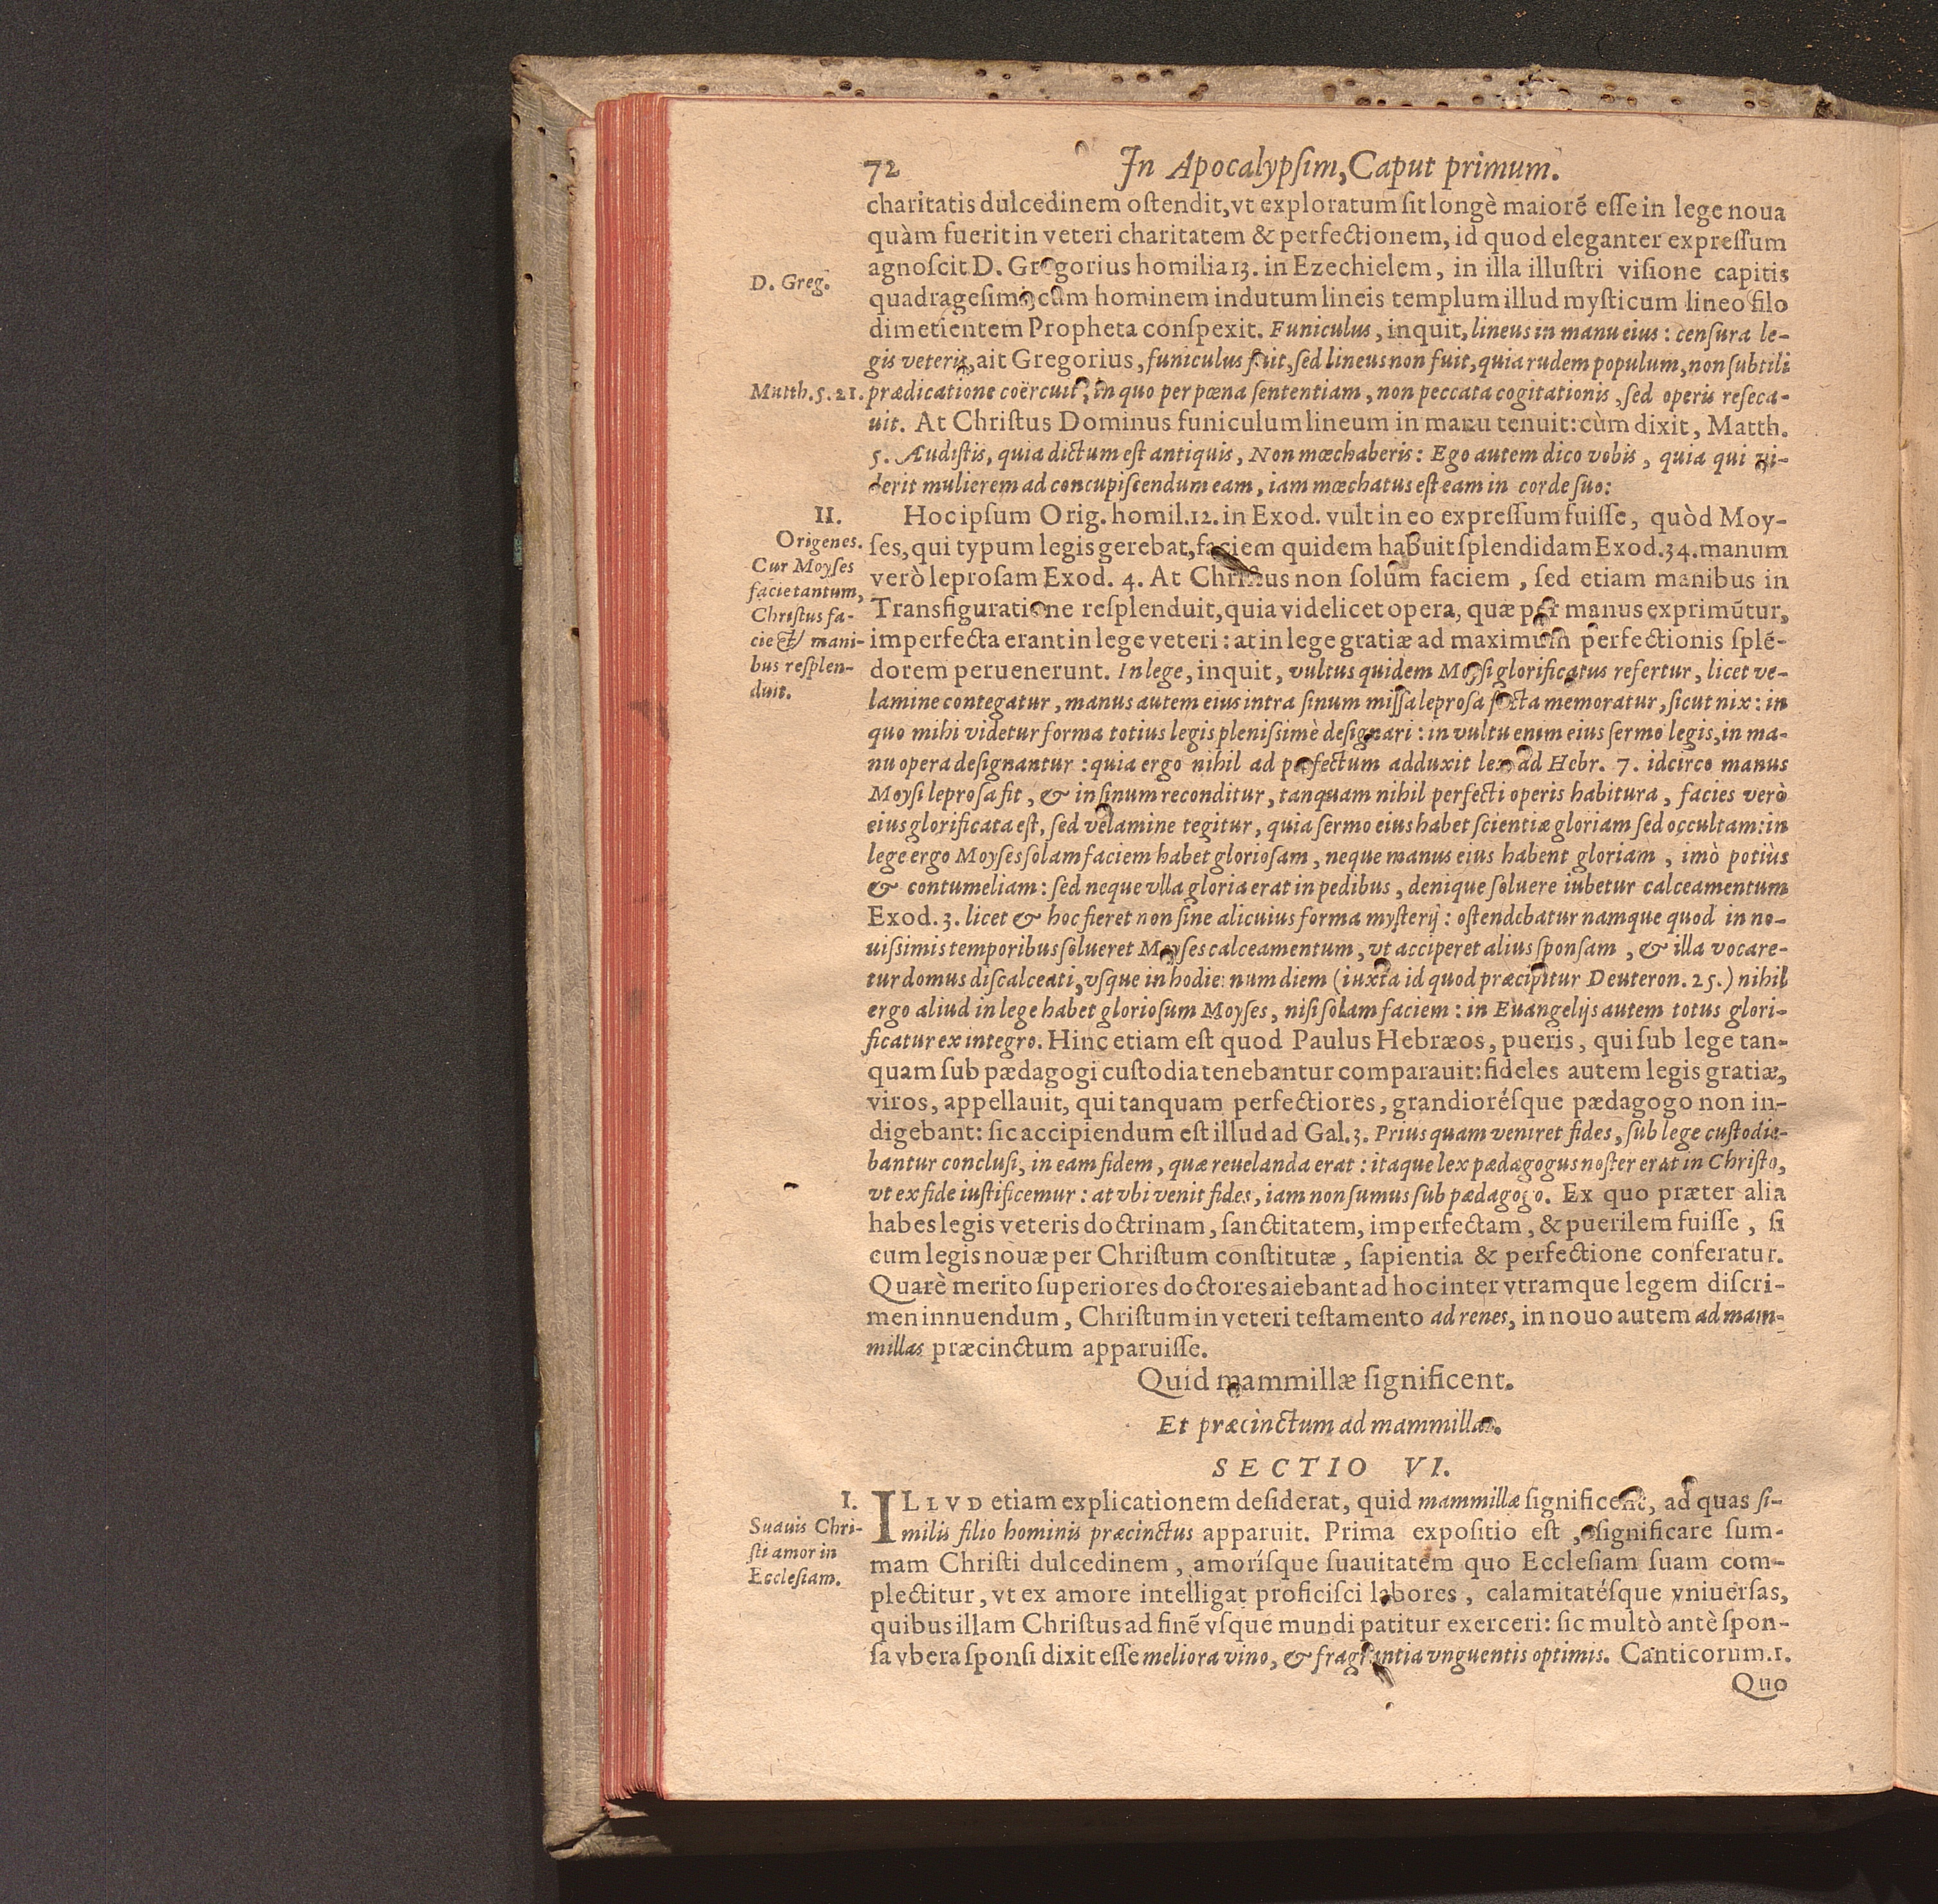 72 In Apocalypſim, Caput primum.
charitatis dulcedinem oſtendit, vt exploratum ſit longè maiorē eſſe in lege noua
quàm fuerit in veteri charitatem & perfectionem, id quod eleganter expreſſum
agnoſcit D. Gregorius homilia 13. in Ezechielem, in illa illuſtri viſione capitis
D. Greg.
quadrageſimi, cùm hominem indutum lineis templum illud myſticum lineo filo
dimetientem Propheta conſpexit. Funiculus, inquit, lineus in manu eius: cenſura le-
gis veteris, ait Gregorius, funiculus fuit, ſed lineus non fuit, quia rudem populum, non ſubtili
Matth. 5. 21.
prædicatione coërcuit, in quo per pœna ſententiam, non peccata cogitationis, ſed operis reſeca-
uit. At Chriſtus Dominus funiculum lineum in manu tenuit: cùm dixit, Matth.
5. Audiſtis, quia dictum eſt antiquis, Non mœchaberis: Ego autem dico vobis, quia qui vi-
derit mulierem ad concupiſcendum eam, iam mœchatus eſt eam in corde ſuo:
II.
Hoc ipſum Orig. homil. 12. in Exod. vult in eo expreſſum fuiſſe, quòd Moy-
Origenes.
Cur Moyſes
facie tantum,
Chriſtus fa-
cie & mani-
bus reſplen-
duit.
ſes, qui typum legis gerebat, faciem quidem habuit ſplendidam Exod. 34. manum
verò leproſam Exod. 4. At Chriſtus non ſolùm faciem, ſed etiam manibus in
Transfiguratione reſplenduit, quia videlicet opera, quæ per manus exprimūtur,
imperfecta erant in lege veteri: at in lege gratiæ ad maximum perfectionis ſplē-
dorem peruenerunt. In lege, inquit, vultus quidem Moyſi glorificatus refertur, licet ve-
lamine contegatur, manus autem eius intra ſinum miſſa leproſa facta memoratur, ſicut nix: in
quo mihi videtur forma totius legis pleniſsimè deſignari: in vultu enim eius ſermo legis, in ma-
nu opera deſignantur: quia ergo nihil ad perfectum adduxit lex ad Hebr. 7. idcirco manus
Moyſi leproſa fit, & in ſinum reconditur, tanquam nihil perfecti operis habitura, facies verò
eius glorificata eſt, ſed velamine tegitur, quia ſermo eius habet ſcientiæ gloriam ſed occultam: in
lege ergo Moyſes ſolam faciem habet glorioſam, neque manus eius habent gloriam, imò potiùs
& contumeliam: ſed neque vlla gloria erat in pedibus, denique ſoluere iubetur calceamentum
Exod. 3. licet & hoc fieret non ſine alicuius forma myſterij: oſtendebatur namque quod in no-
uiſsimis temporibus ſolueret Moyſes calceamentum, vt acciperet alius ſponſam, & illa vocare-
tur domus diſcalceati, vſque in hodiernum diem (iuxta id quod præcipitur Deuteron. 25.) nihil
ergo aliud in lege habet glorioſum Moyſes, niſi ſolam faciem: in Euangelijs autem totus glori-
ficatur ex integro. Hinc etiam eſt quod Paulus Hebræos, pueris, qui ſub lege tan-
quam ſub pædagogi cuſtodia tenebantur comparauit: fideles autem legis gratiæ,
viros, appellauit, qui tanquam perfectiores, grandioréſque pædagogo non in-
digebant: ſic accipiendum eſt illud ad Gal. 3. Prius quam veniret fides, ſub lege cuſtodie-
bantur concluſi, in eam fidem, quæ reuelanda erat: itaque lex pædagogus noſter erat in Chriſto,
vt ex fide iuſtificemur: at vbi venit fides, iam non ſumus ſub pædagogo. Ex quo præter alia
habes legis veteris doctrinam, ſanctitatem, imperfectam, & puerilem fuiſſe, ſi
cum legis nouæ per Chriſtum conſtitutæ, ſapientia & perfectione conferatur.
Quarè merito ſuperiores doctores aiebant ad hoc inter vtramque legem diſcri-
men innuendum, Chriſtum in veteri teſtamento ad renes, in nouo autem ad mam-
millas præcinctum apparuiſſe.
Quid mammillæ ſignificent.
Et præcinctum ad mammillas.
SECTIO VI.
I.
Suauis Chri-
ſti amor in
Eccleſiam.
ILLVD etiam explicationem deſiderat, quid mammillæ ſignificent, ad quas ſi-
milis filio hominis præcinctus apparuit. Prima expoſitio eſt, ſignificare ſum-
mam Chriſti dulcedinem, amoríſque ſuauitatem quo Eccleſiam ſuam com-
plectitur, vt ex amore intelligat proficiſci labores, calamitatéſque vniuerſas,
quibus illam Chriſtus ad finē vſque mundi patitur exerceri: ſic multò antè ſpon-
ſa vbera ſponſi dixit eſſe meliora vino, & fragrantia vnguentis optimis. Canticorum. 1.
Quo